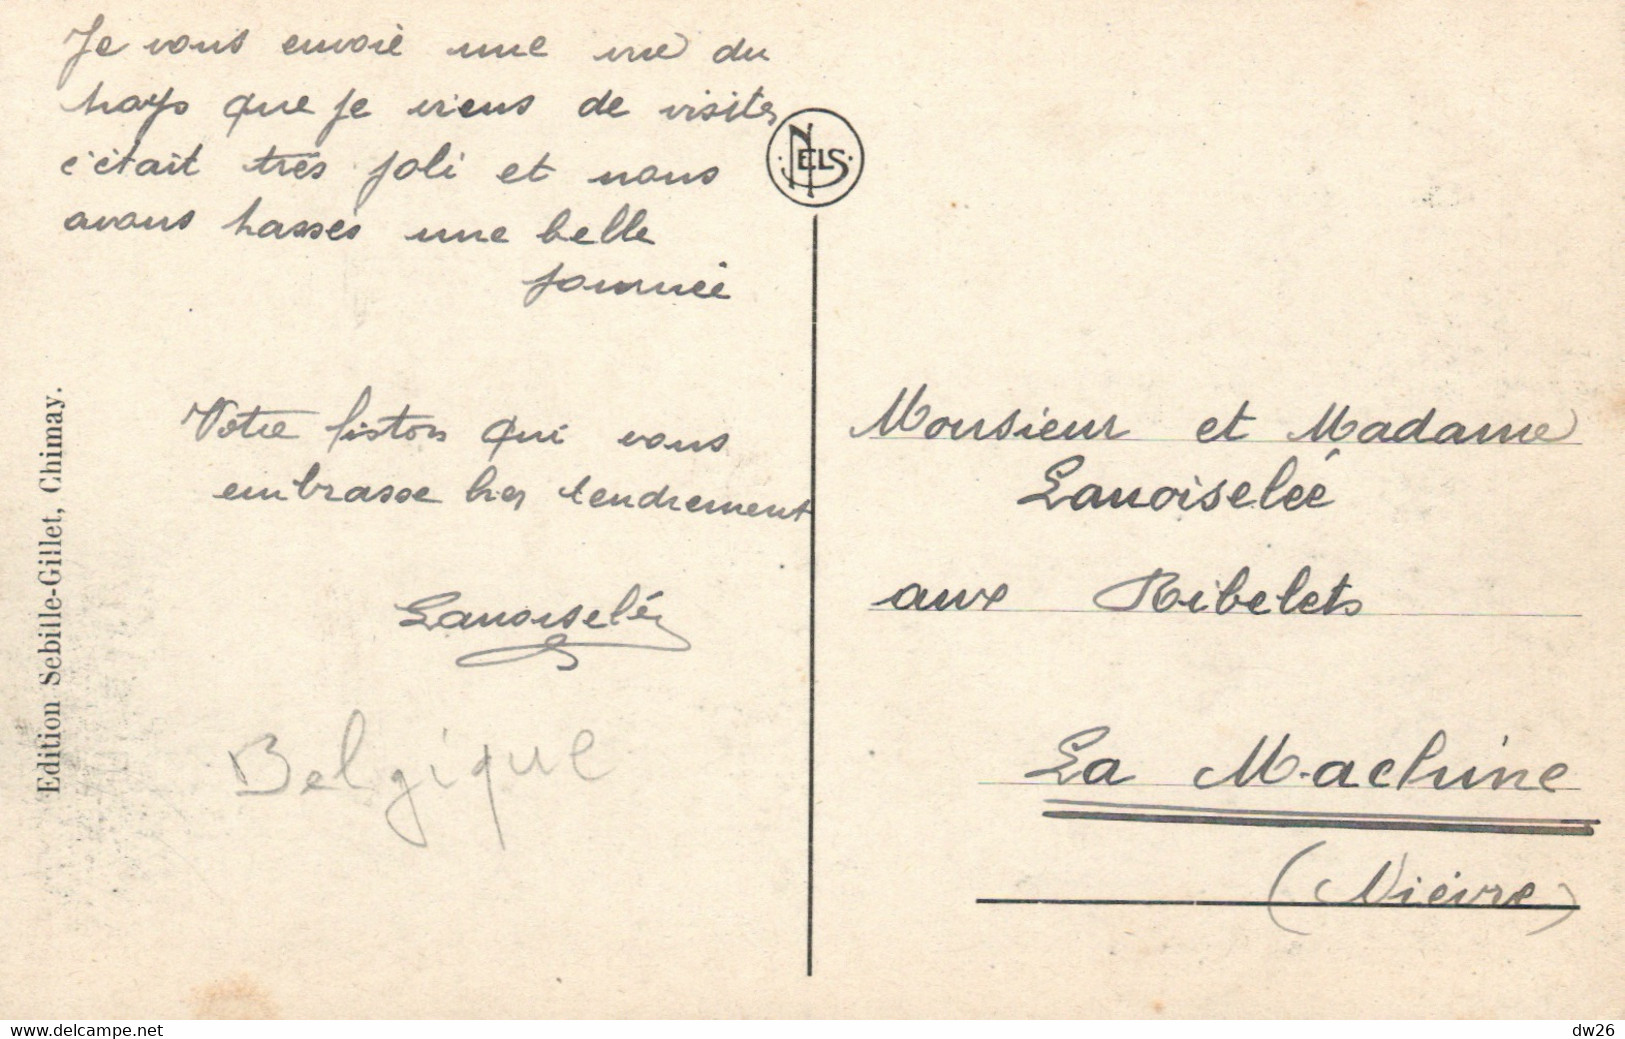 Je vous envoie une vue du
pays que je viens de visiter
c'était très joli et nous
avons passés une belle
journée
Votre fiston qui vous
embrasse bien tendrement
Lanoiselée
Belgique
Edition Sebille-Gillet, Chimay.
NELS
Monsieur et Madame
Lanoiselée
aux Ribelets
La Machine
(Nièvre)
www.delcampe.net
dw26